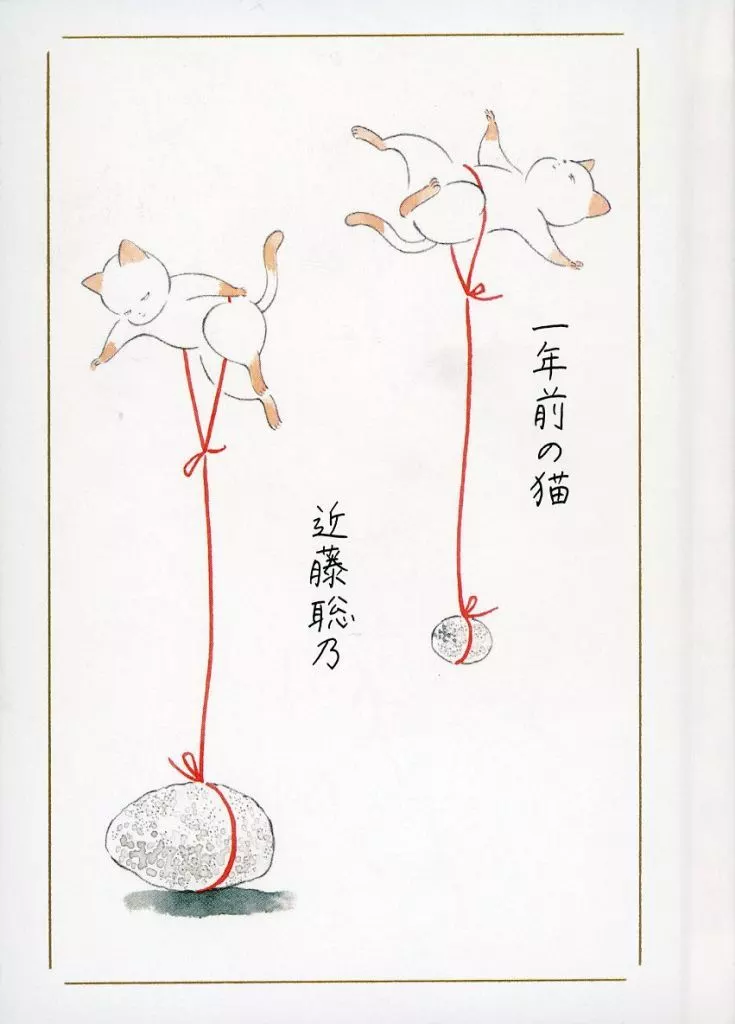 一年前の猫
近藤聡乃